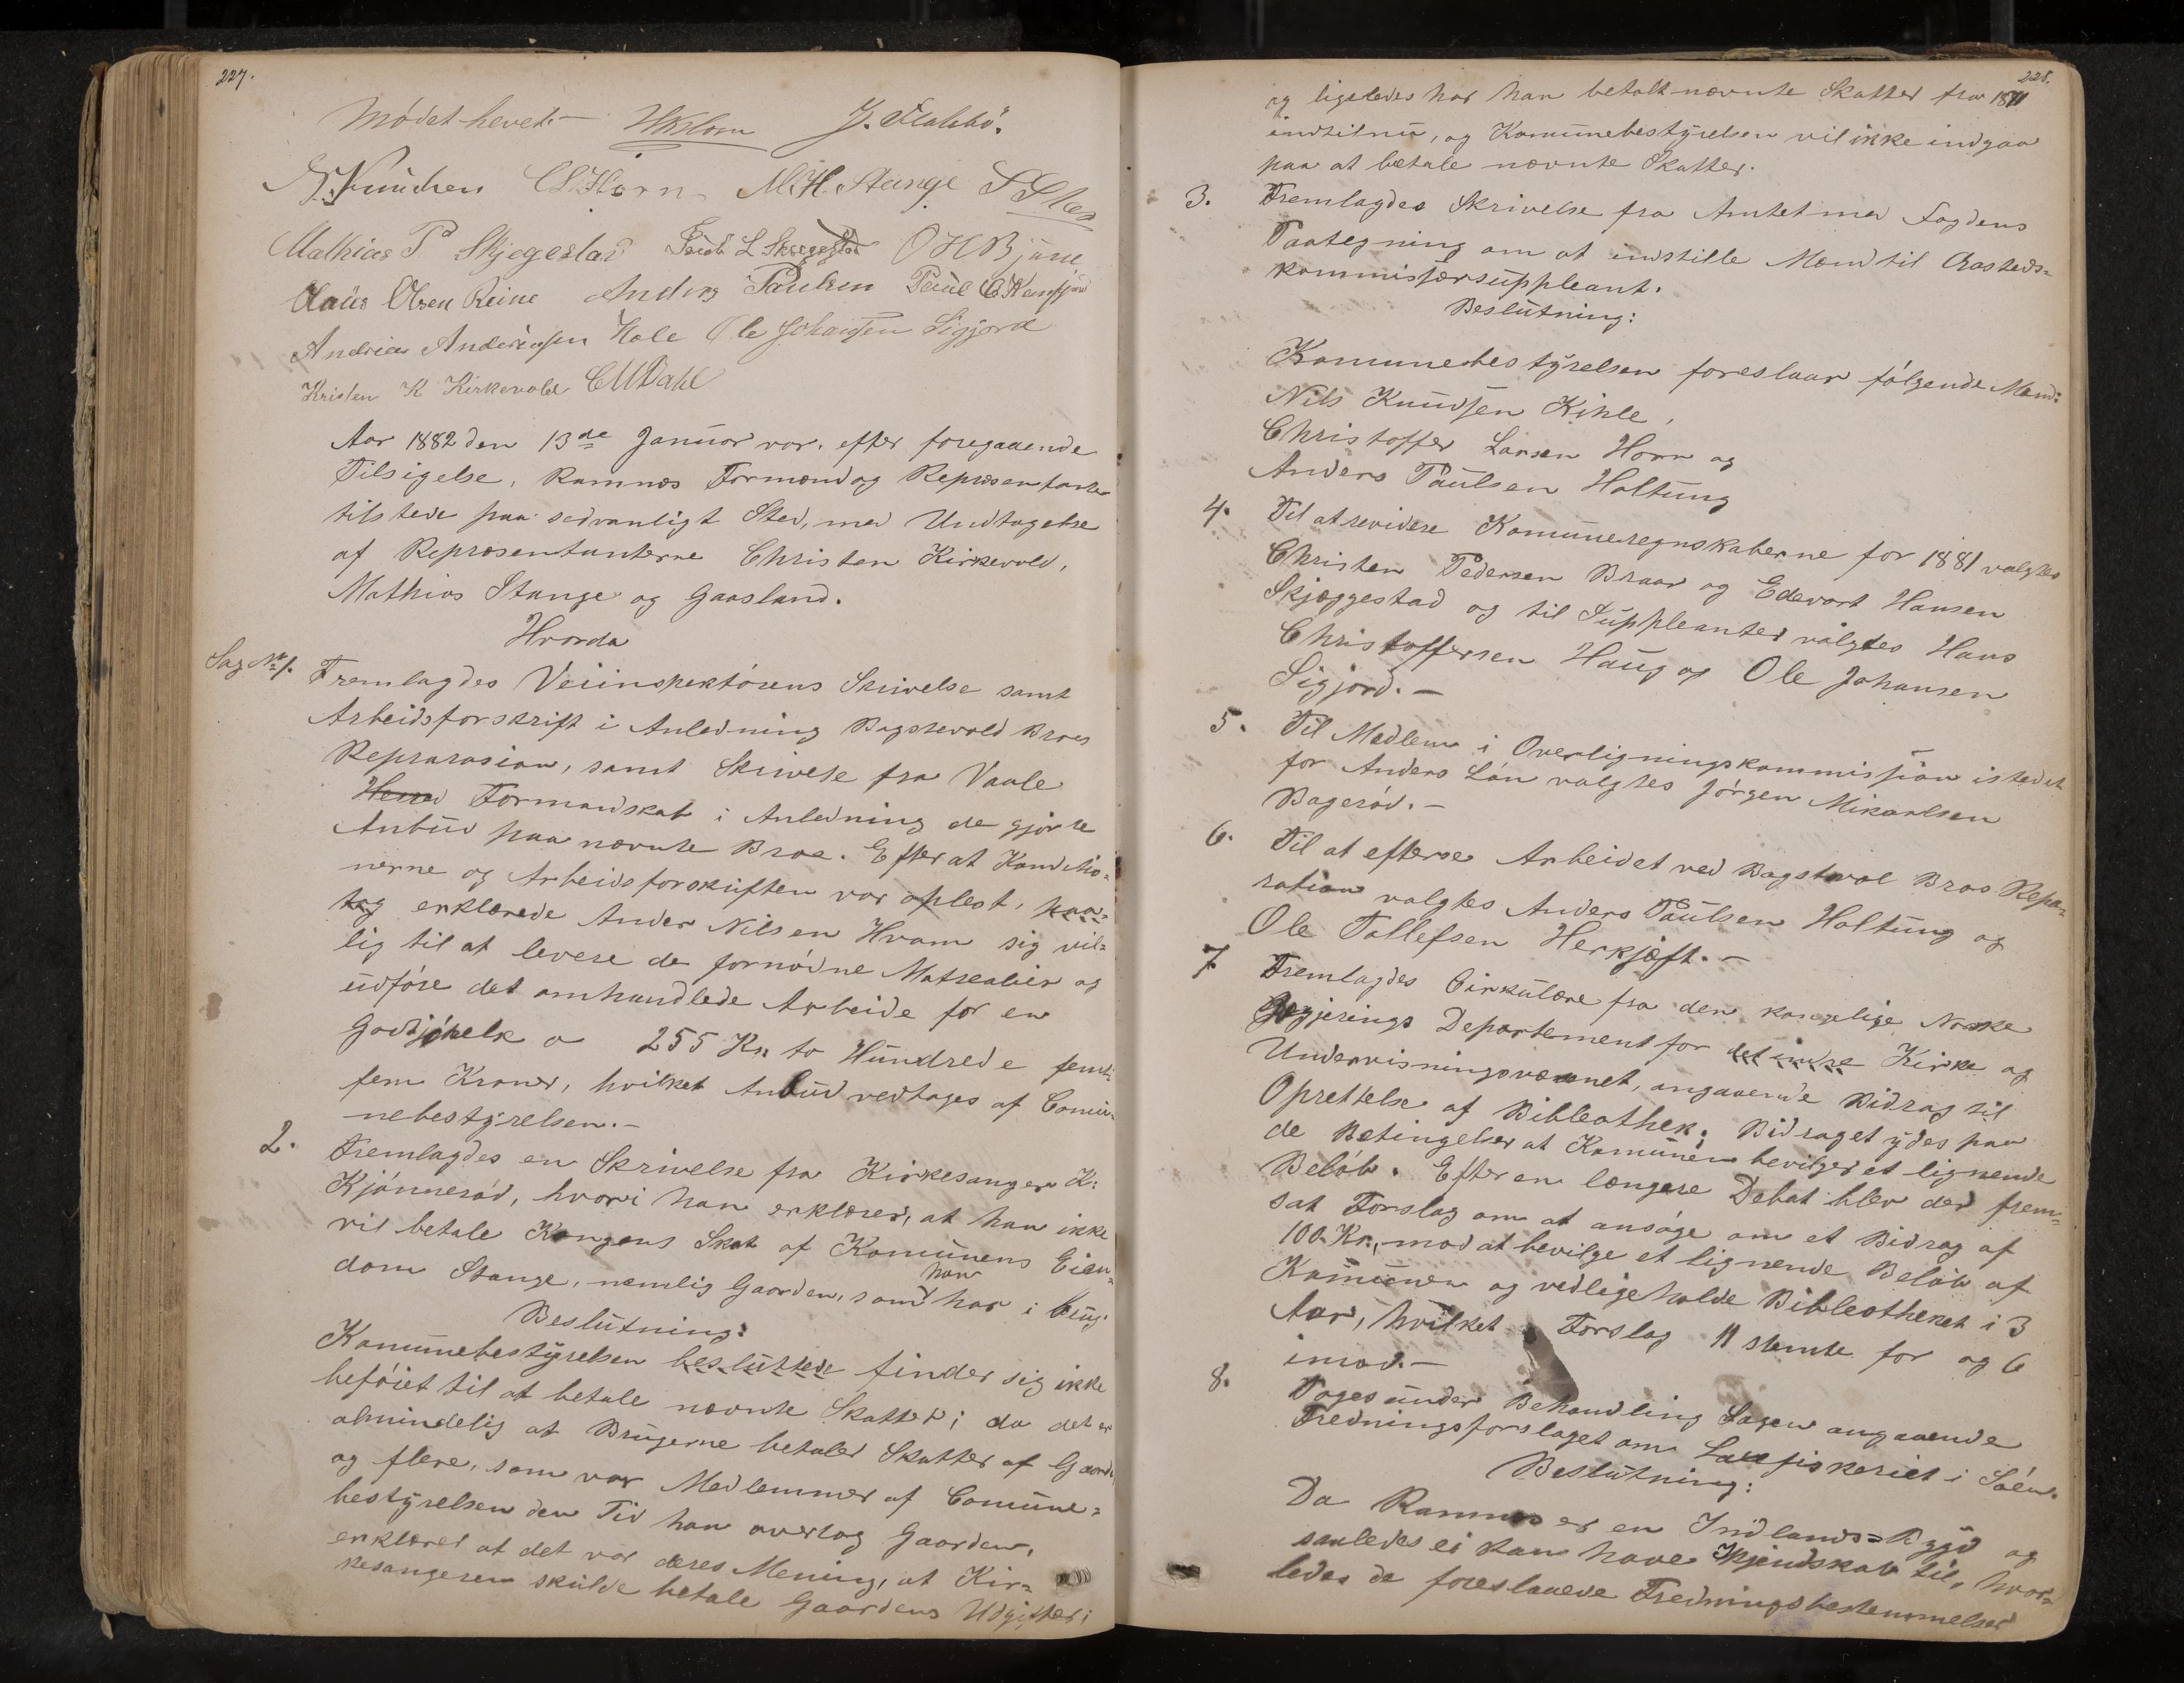 227.
Mødet hevet.— J. Flakbö.
N. Knudsen C. L. Horn M. H. Stange
Mathias P Skjegestad Jacob L Skjeggestad O H Bjune
Claus Olsen Reine Anders Paulsen Paul
Andreas Andreassen Hole Ole Johansen Sigjord
Kristen K Kirkevold C M Dahl
Aar 1882 den 13de Januar var, efter foregaaende
Tilsigelse, Ramnæs Formænd og Repræsentanter
tilstede paa sedvanligt Sted, med Undtagelse
af Repræsentanterne Christen Kirkevold,
Mathias Stange og Gaasland.
Hvorda
Sag No 1. Fremlagdes Veiinspektörens Skrivelse samt
Arbeidsforskrift i Anledning Bagstevold Broes
Reprarasion, samt Skrivelse fra Vaale
Herred Formandskab i Anledning de gjorte
Anbud paa nævnte Broe. Efter at Konditio-
nerne og Arbeidsforskriften var oplest, paa-
tog erklærede Ander Nilsen Hvam sig vil-
lig til at levere de fornödne Matrealier og
udföre det omhandlede Arbeide for en
Godtjörelse a 255 Kr. to Hundrede femti
fem Kroner, hvilket Anbud vedtages af Comu-
nebestyrelsen.—
2. Fremlagdes en Skrivelse fra Kirkesanger K:
Kjönneröd, hvori han erklærer, at han ikke
vil betale Kongens Skat af Komunens Eien-
dom Stange, nemlig Gaarden, som han har i Brug
Beslutning:
Komunebestyrelsen besluttede finder sig ikke
beföiet til at betale nævnte Skatter; da det er
almindelig at Brugerne betaler Skatter af Gaarde
og flere, som var Medlemmer af Comune-
bestyrelsen den Tid han overtog Gaarden,
erklæret at det var deres Mening, at Kir-
kesangeren skulde betale Gaardens Udgifter;
228.
og ligeledes har han betalt nævnte Skatter fra 1871
indtilnu, og Komunebestyrelsen vil ikke indgaa
paa at betale nævnte Skatter.
3. Fremlagdes Skrivelse fra Amtet med Fogdens
Paategning om at indstille Mænd til Aasteds-
kommissærsuppleant.
Beslutning:
Komunebestyrelsen foreslaar fölgende Mænd:
Nils Knudsen Kihle,
Christoffer Larsen Horn og
Anders Paulsen Holtung
4. Til at revidere Komuneregnskaberne for 1881 valgtes
Christen Pedersen Braar og Edevart Hansen
Skjæggestad og til Suppleanter valgtes Hans
Christoffersen Haug og Ole Johansen
Sigjord.—
5. Til Medlem i Overligningskommissjon istedet
for Anders Lön valgtes Jörgen Mikaelsen
Bageröd.—
6. Til at efterse Arbeidet ved Bagstvol Bros Repa-
ration valgtes Anders Paulsen Holtung og
Ole Tollefsen Herkjæft.—
7. Fremlagdes Cirkulære fra den kongelige Norske
Regjerings Departement for det indre Kirke og
Undervisningsvæsenet, angaaende Bidrag til
Oprettelse af Bibleothek. Bidraget ydes paa
de Betingelser at Komunen bevilger et lignende
Belöb. Efter en længere Debat blev der frem-
sat Forslag om at ansöge om et Bidrag af
100 Kr., mod at bevilge et lignende Belöb af
Komunen og vedligeholde Bibleotheket i 3
Aar, hvilket Forslag 11 stemte for og 6
imod.—
8. Toges under Behandling Sagen angaaende
Fredningsforslaget om Laxfiskeriet i Söen.
Beslutning:
Da Ramnæs er en Indlands=Bygd og
saaledes ei kan have Kjendskab til, hvor-
ledes de foreslaaede Fredningsbestemmelser